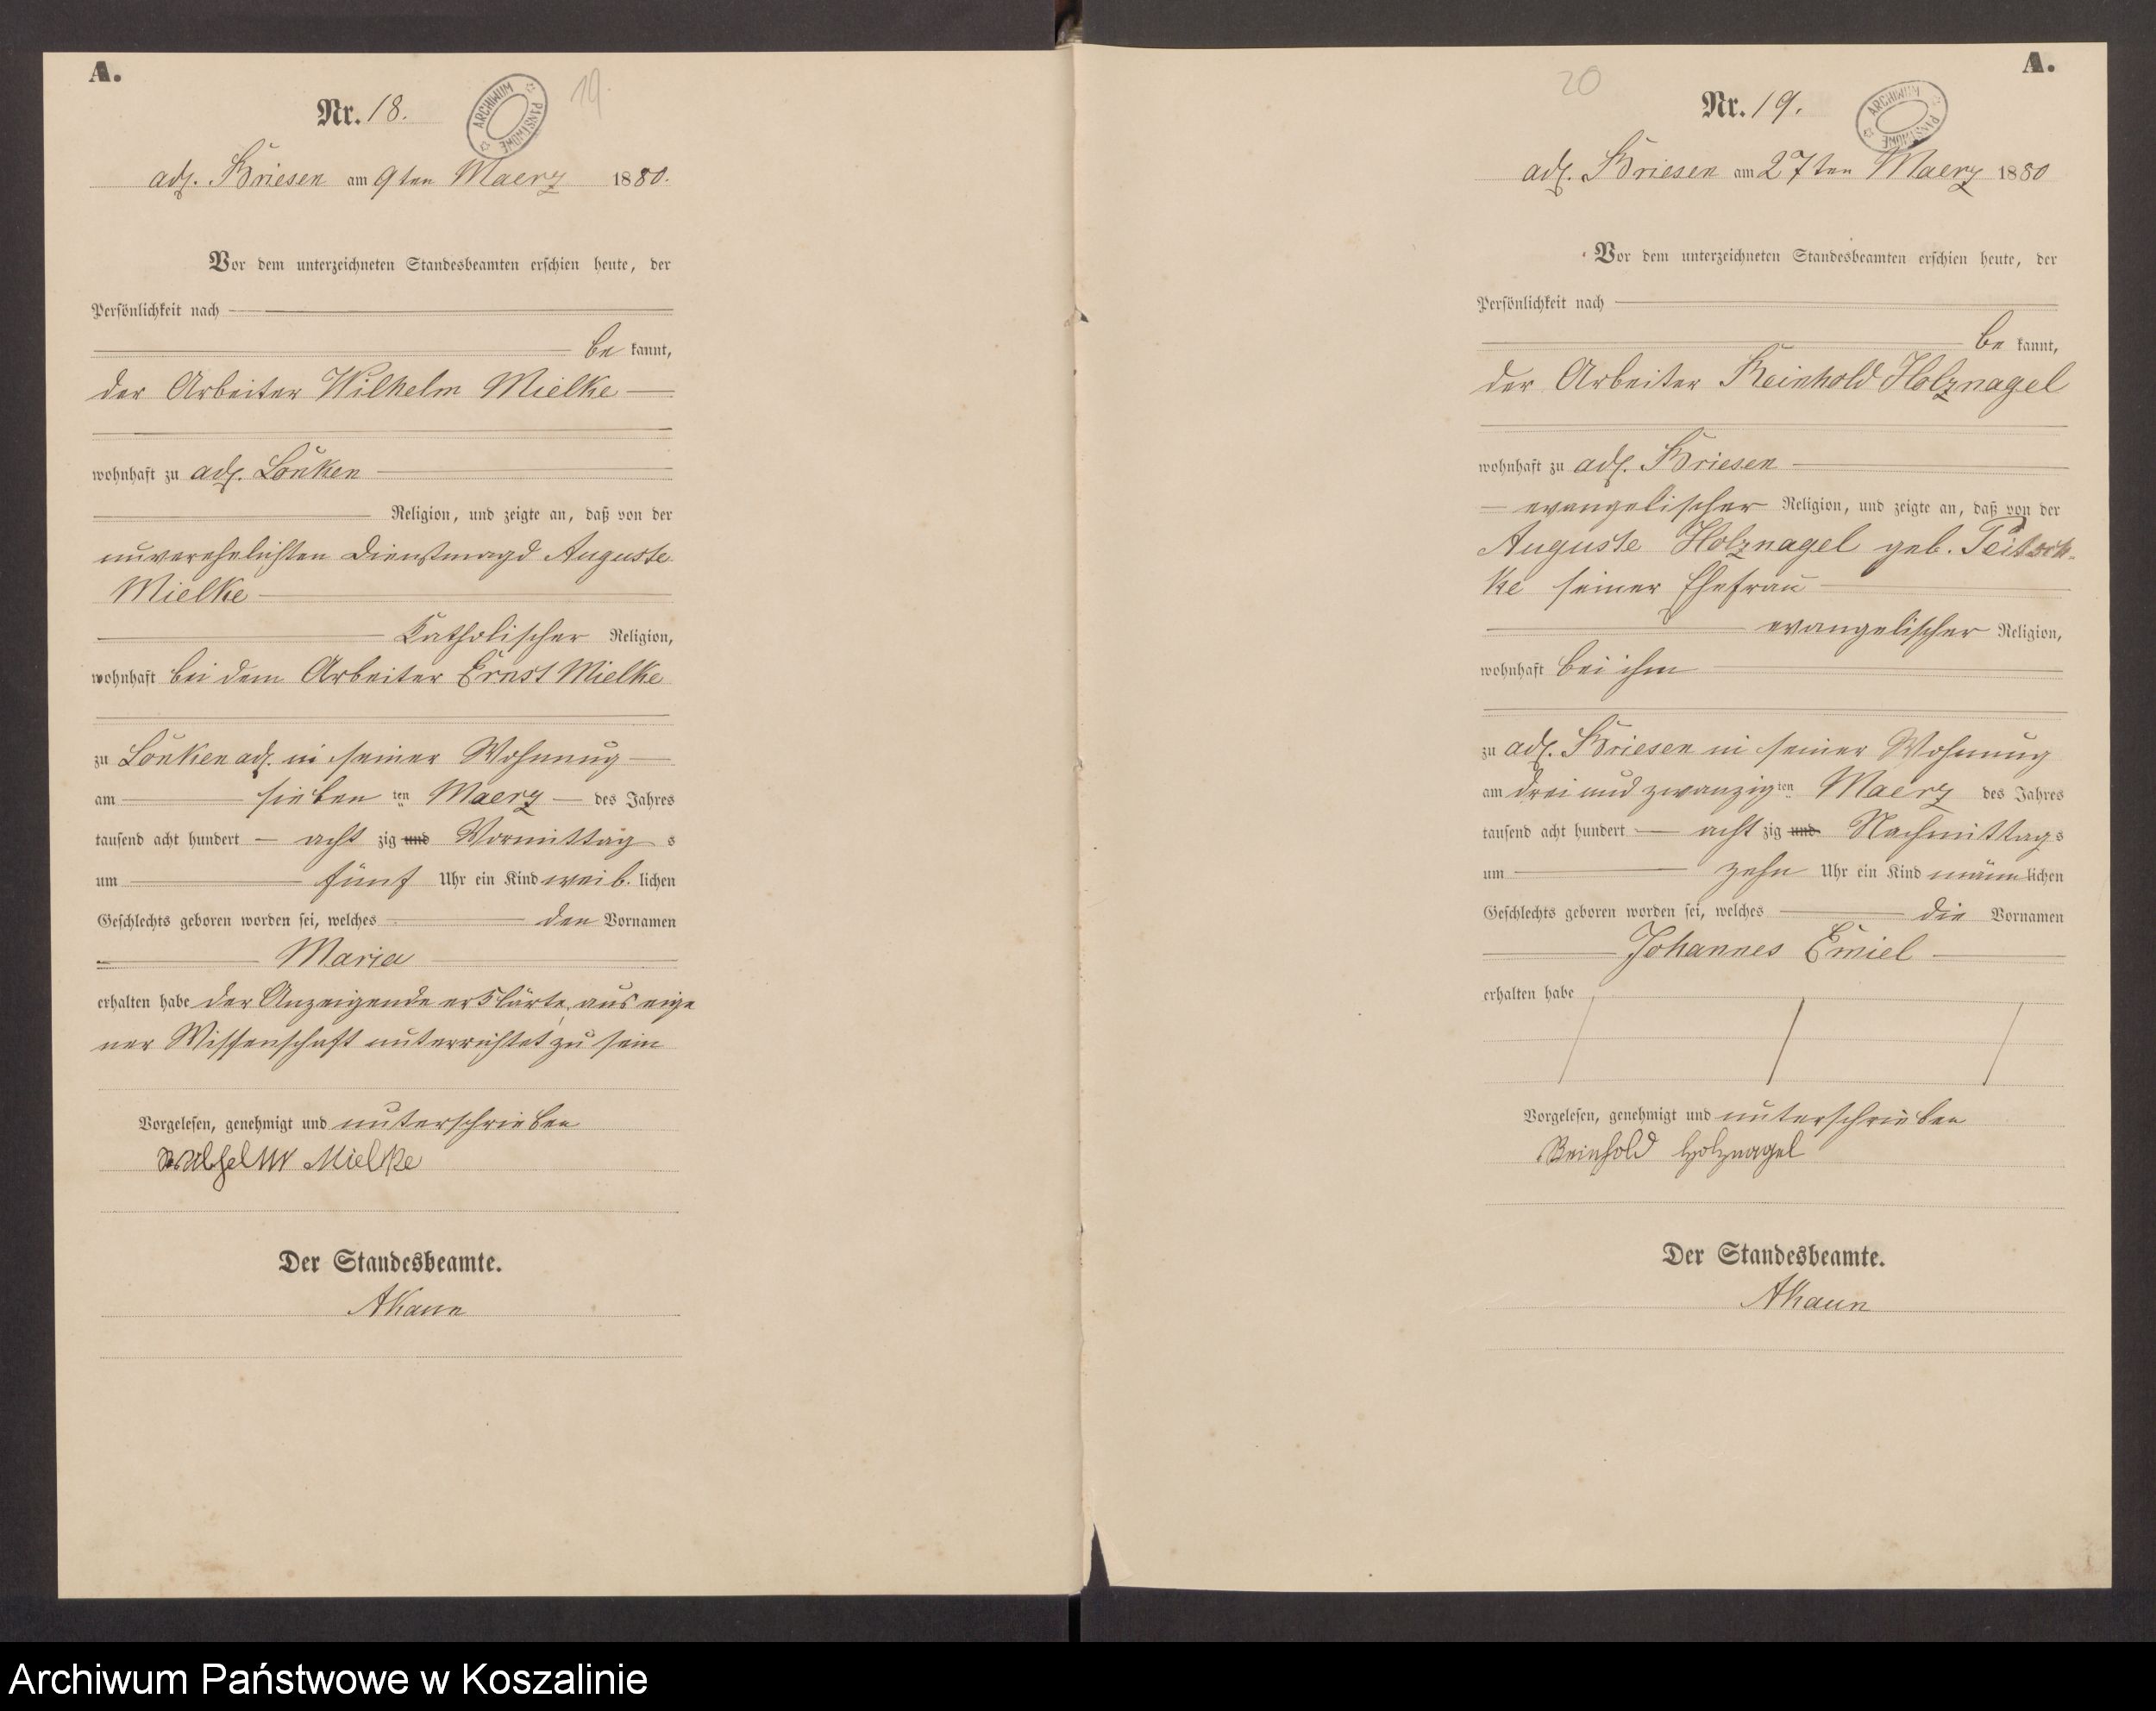 A.
Nr. 18.
19.
ARCHIWUM PAŃSTWOWE
adl. Briesen am 9ten Maerz 1880.
Vor dem unterzeichneten Standesbeamten erschien heute, der
Persönlichkeit nach
be kannt,
der Arbeiter Wilhelm Mielke
wohnhaft zu adl. Lonken
Religion, und zeigte an, daß von der
unverehelichten Dienstmagd Auguste
Mielke
Katholischer Religion,
wohnhaft bei dem Arbeiter Ernst Mielke
zu Lonken adl. in seiner Wohnung
am sieben ten Maerz des Jahres
tausend acht hundert acht zig und Vormittag s
um fünf Uhr ein Kind weib. lichen
Geschlechts geboren worden sei, welches den Vornamen
Maria
erhalten habe der Anzeigende erklärte, aus eige
ner Wissenschaft unterrichtet zu sein
Vorgelesen, genehmigt und unterschrieben
Wilhelm Mielke
Der Standesbeamte.
A.
20
Nr. 19.
ARCHIWUM PAŃSTWOWE
adl. Briesen am 27ten Maerz 1880
Vor dem unterzeichneten Standesbeamten erschien heute, der
Persönlichkeit nach
be kannt,
der Arbeiter Reinhold Holznagel
wohnhaft zu adl. Briesen
evangelischer Religion, und zeigte an, daß von der
Auguste Holznagel geb. Peitsch-
ke seiner Ehefrau
evangelischer Religion,
wohnhaft bei ihm
zu adl. Briesen in seiner Wohnung
am drei und zwanzig ten Maerz des Jahres
tausend acht hundert acht zig und Nachmittag s
um zehn Uhr ein Kind männ lichen
Geschlechts geboren worden sei, welches die Vornamen
Johannes Emiel
erhalten habe
Vorgelesen, genehmigt und unterschrieben
Reinhold Holznagel
Der Standesbeamte.
Archiwum Państwowe w Koszalinie